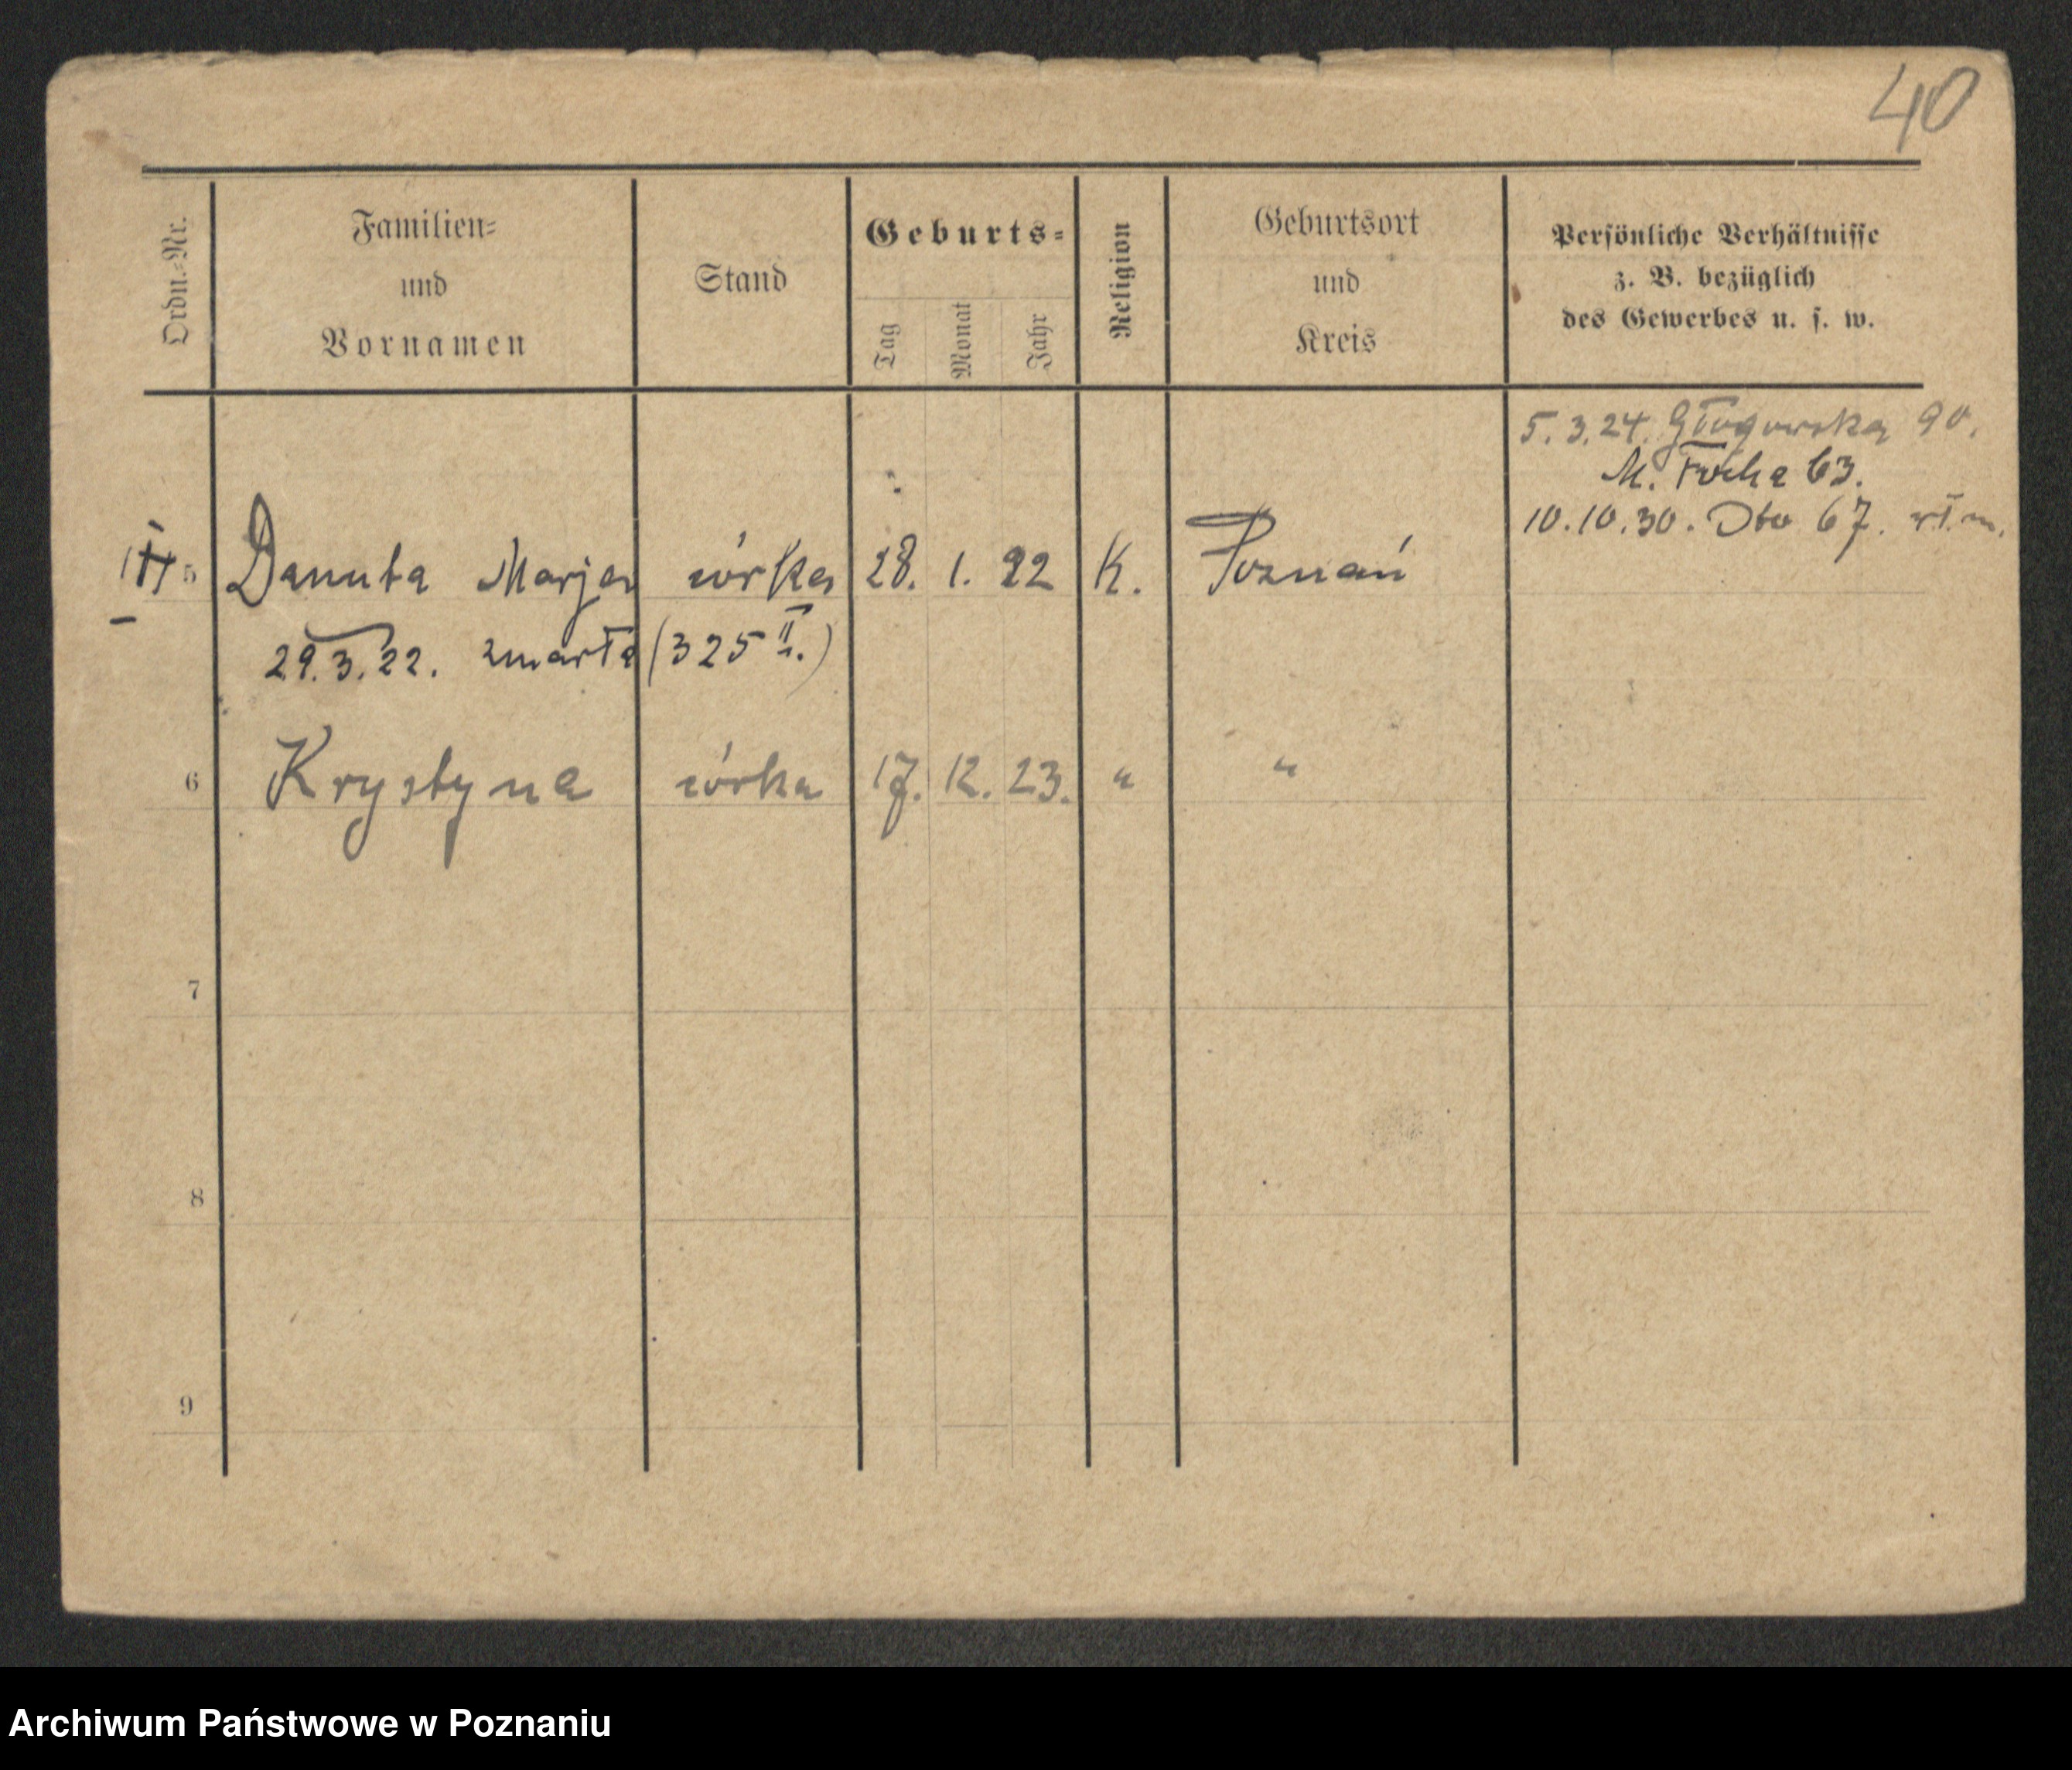 40
Ordn.-Nr.
Familien-
und
Vornamen
Stand
Geburts-
Tag
Monat
Jahr
Religion
Geburtsort
und
Kreis
Persönliche Verhältnisse
z. B. bezüglich
des Gewerbes u. s. w.
5. 3. 24. Głogowska 90.
M. Focha 63.
10. 10. 30. Dto 67.
5 Danuta Marja córka 28. 1. 22 K. Poznań
29. 3. 22. zmarła (325 II.)
6 Krystyna córka 17. 12. 23. " "
7
8
9
Archiwum Państwowe w Poznaniu